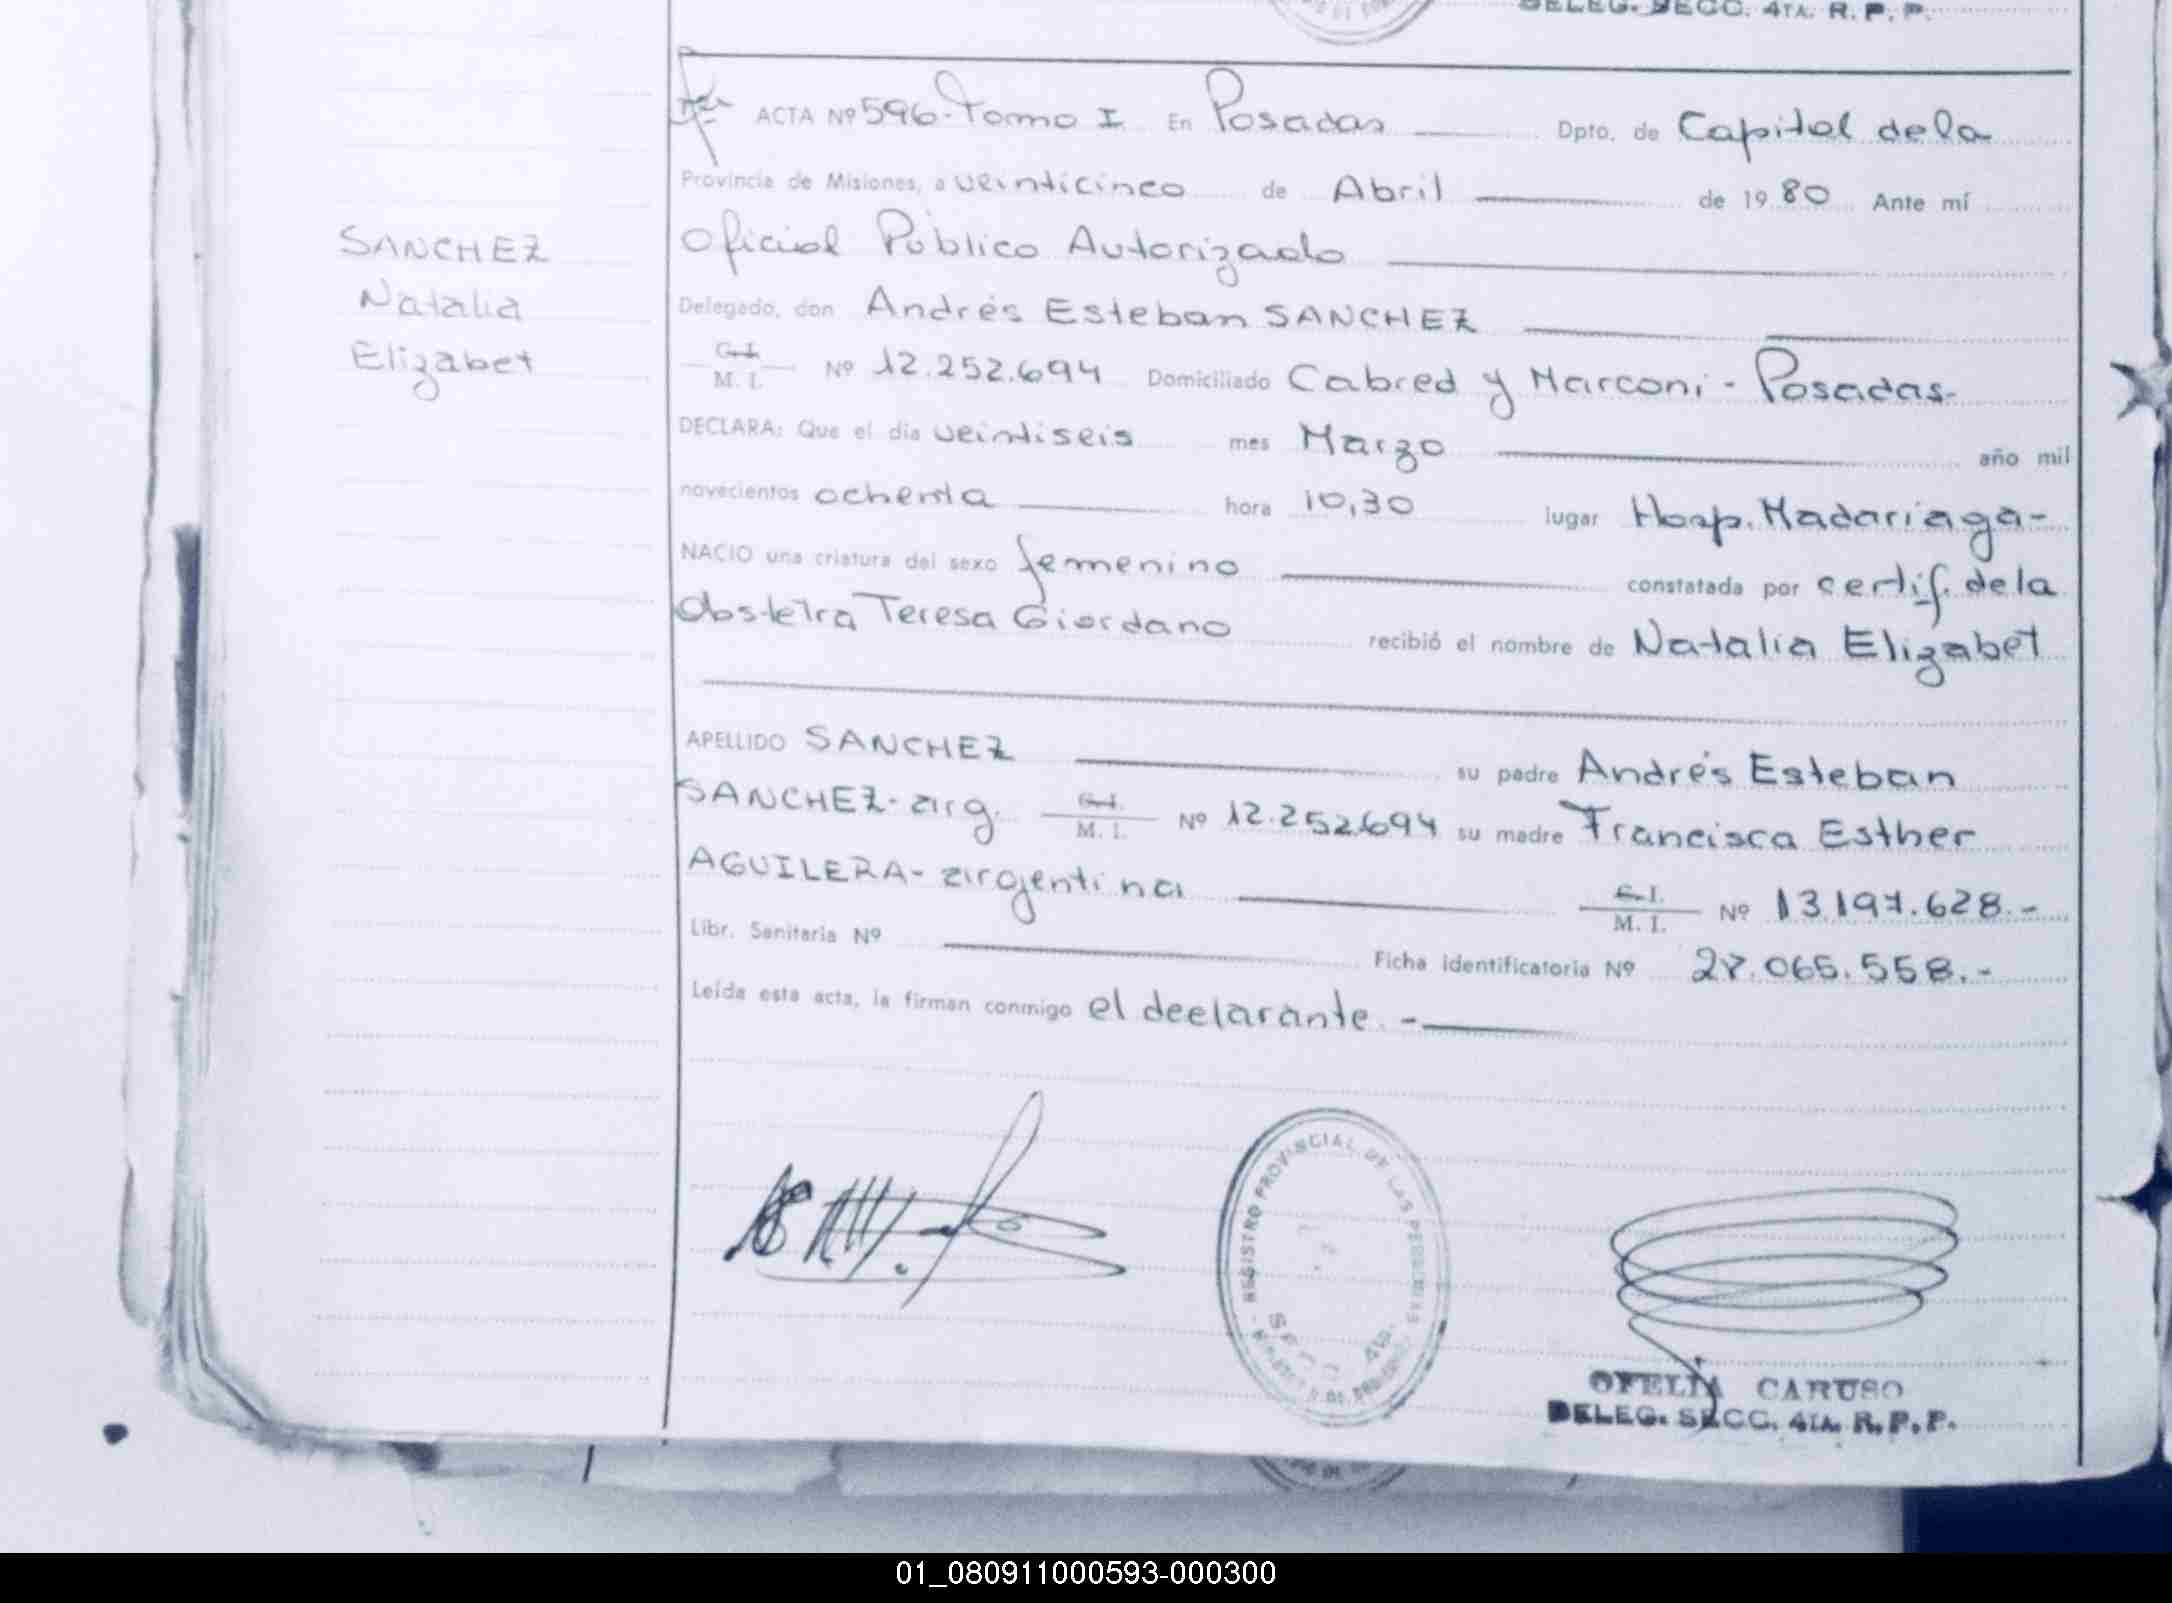 DELEG. SECC. 4TA. R. P. P.
ACTA Nº 596 - Tomo I En Posadas Dpto. de Capital de la
Provincia de Misiones, a veinticinco de Abril de 1980 Ante mí
Oficial Público Autorizado
SANCHEZ
Natalia
Elizabet
Delegado, don Andrés Esteban SANCHEZ
C. I.
M. I. Nº 12.252.694 Domiciliado Cabred y Marconi - Posadas.
DECLARA: Que el día veintiseis mes Marzo año mil
novecientos ochenta hora 10,30 lugar Hosp. Madariaga-
NACIO una criatura del sexo femenino constatada por certif. de la
Obstetra Teresa Giordano recibió el nombre de Natalia Elizabet
APELLIDO SANCHEZ su padre Andrés Esteban
SANCHEZ - arg. C. I.
M. I. Nº 12.252.694 su madre Francisca Esther
AGUILERA - argentina C. I.
M. I. Nº 13.197.628.-
Libr. Sanitaria Nº Ficha identificatoria Nº 28.065.558.-
Leída esta acta, la firman conmigo el declarante. -
REGISTRO PROVINCIAL DE LAS PERSONAS
OFELIA CARUSO
DELEG. SECC. 4TA. R. P. P.
01_080911000593-000300